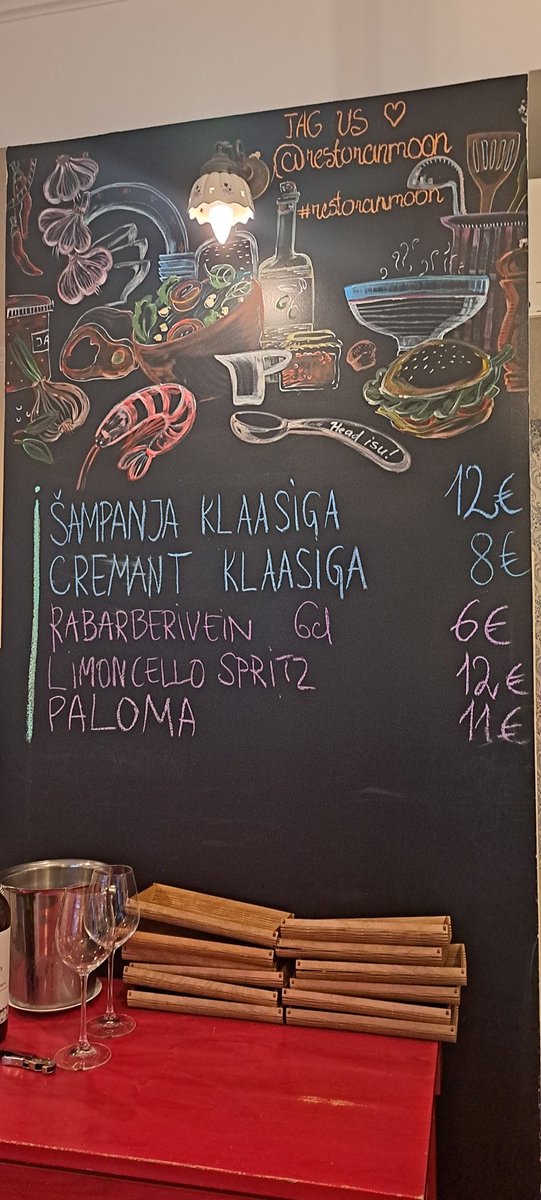 TAG US ♡
@restoranmoon
#restoranmoon
Head isu!
ŠAMPANJA KLAASIGA 12€
CREMANT KLAASIGA 8€
RABARBERIVEIN 6cl 6€
LIMONCELLO SPRITZ 12€
PALOMA 11€